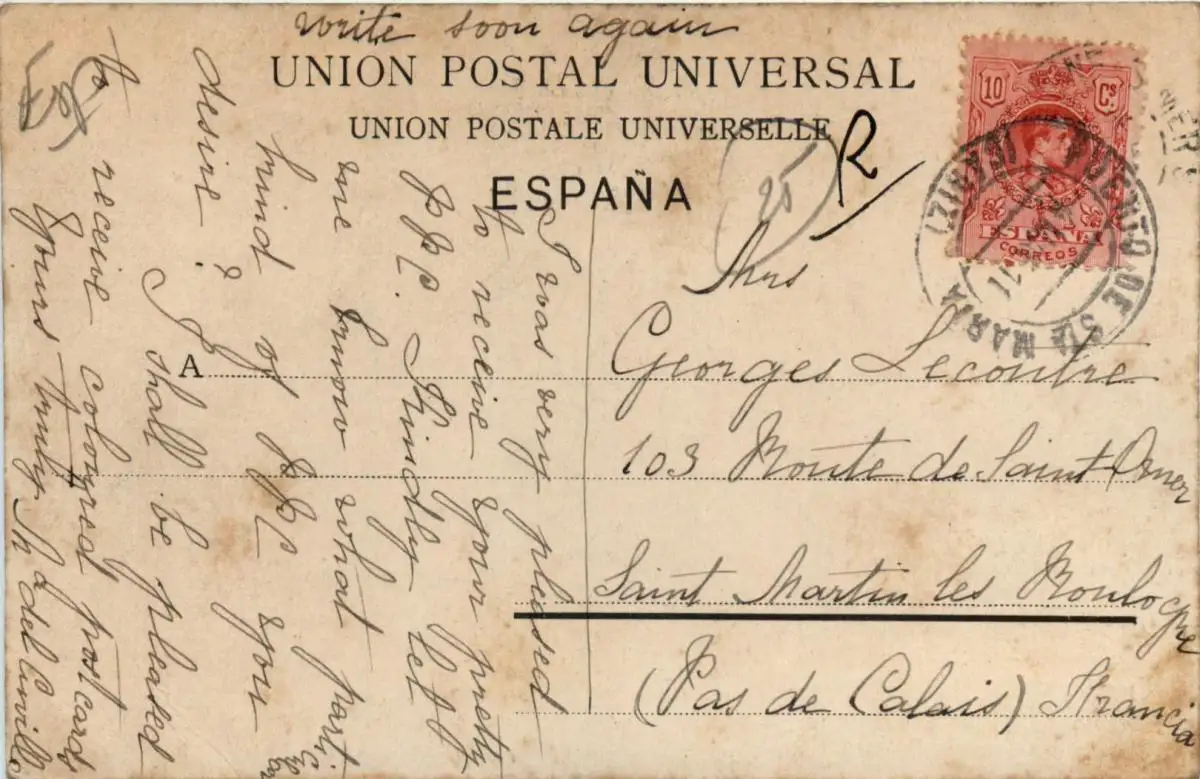 write soon again
UNION POSTAL UNIVERSAL
UNION POSTALE UNIVERSELLE
ESPAÑA
R
25
10 Cs
ESPAÑA
CORREOS
PUERTO DE Sta MARIA
(CADIZ)
11
Mrs
A Georges Lecoutre
103 Route de Saint Omer
Saint Martin les Boulogne
(Pas de Calais) Francia
I was very pleased
to receive your pretty
P.P.C. Kindly let
me know what parti
kind of PPC your
desire? I shall be pleased
to receive coloured postcards
Yours truly